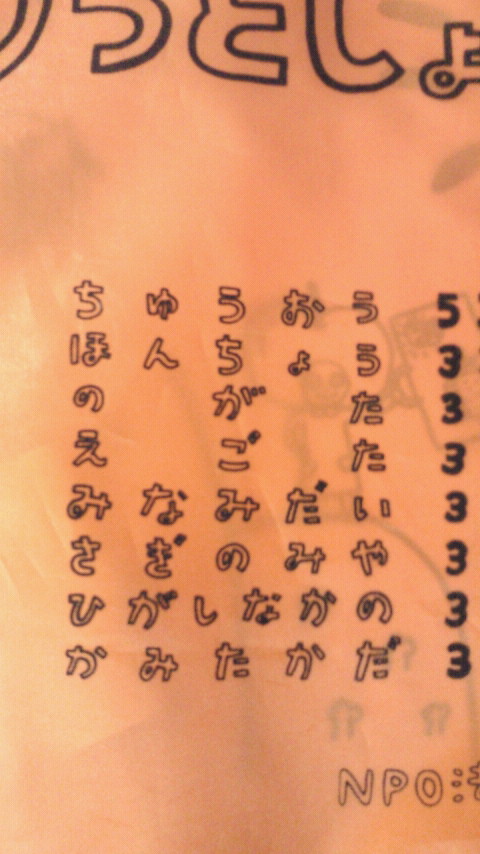 つとしょ
ちゅうおう 5
ほんちょう 3
のがた 3
えごた 3
みなみだい 3
さぎのみや 3
ひがしなかの 3
かみたかだ 3
NPO: